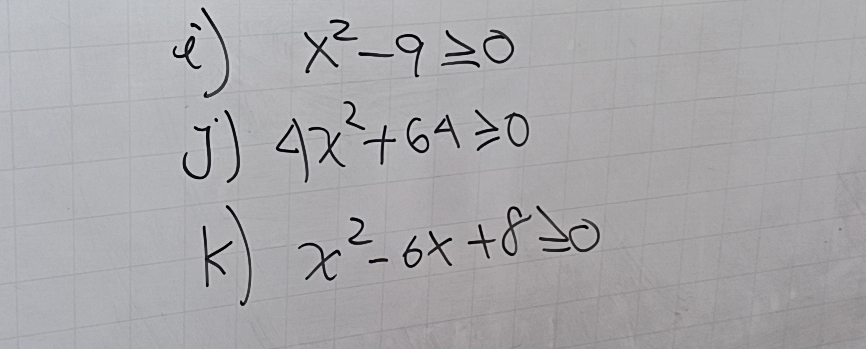 i) x²-9≥0
j) 4x²+64≥0
k) x²-6x+8≥0